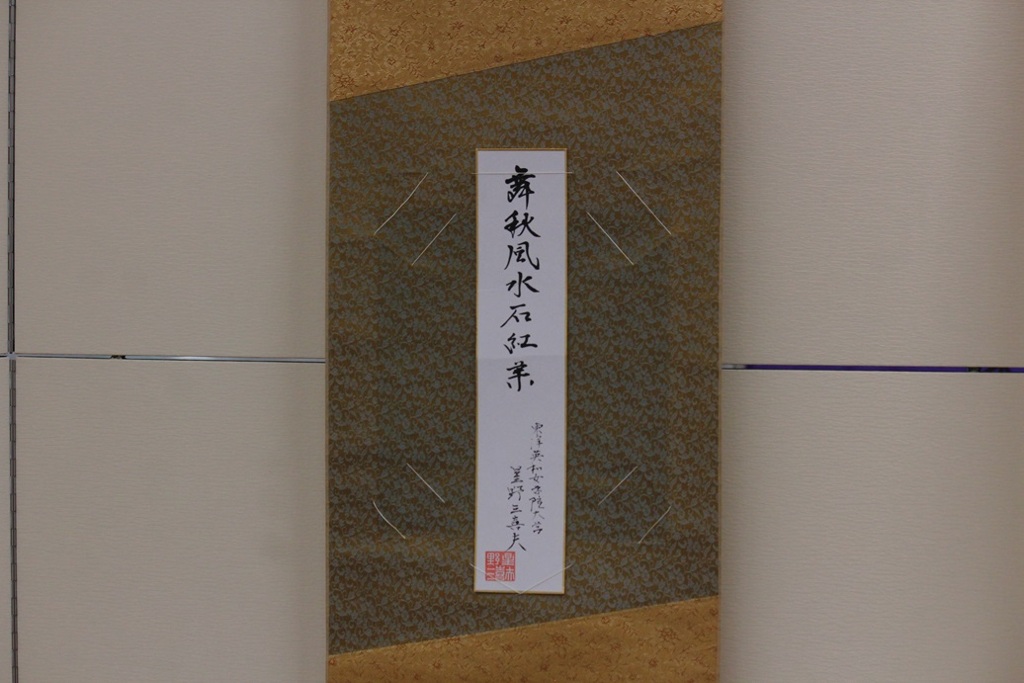 舞秋風水石紅葉
東洋英和女学院大学
星野三喜夫